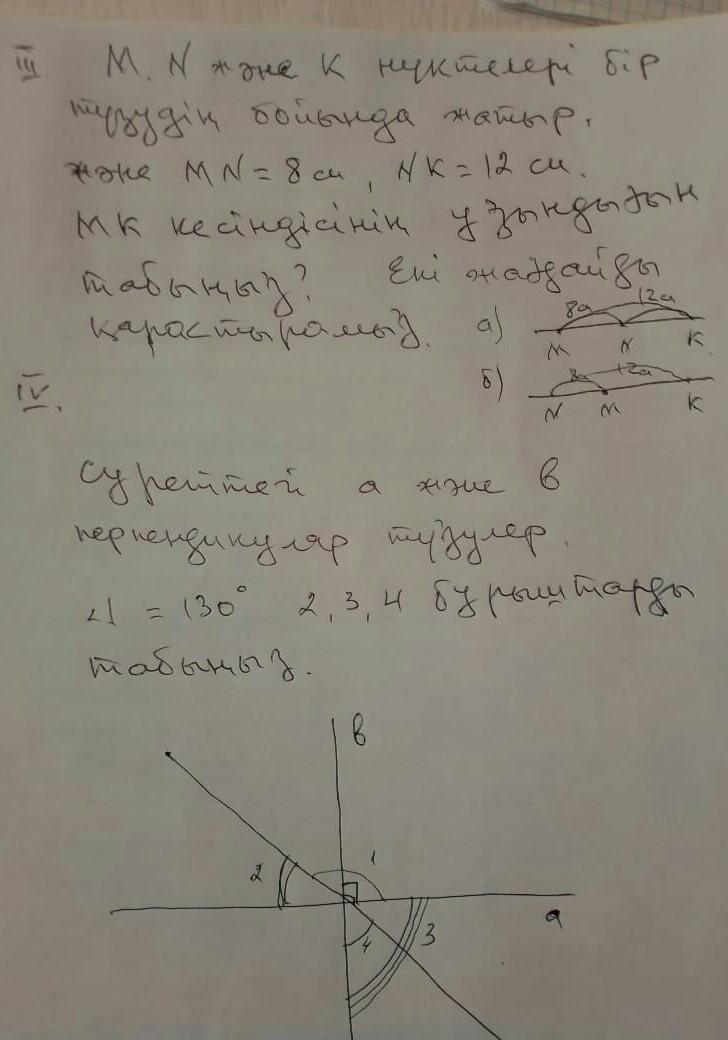 III M. N және K нүктелері бір
түзудің бойында жатыр.
және MN = 8 см, NK = 12 см.
MK кесіндісінің ұзындығын
табыңыз? Екі жағдайды
қарастырамыз. а) 8см 12см
M N K
б) 8см 12см
N M K
IV.
Суреттегі a және b
перпендикуляр түзулер.
∠1 = 130° 2, 3, 4 бұрыштарды
табыңыз.
b
2 1
a
4 3